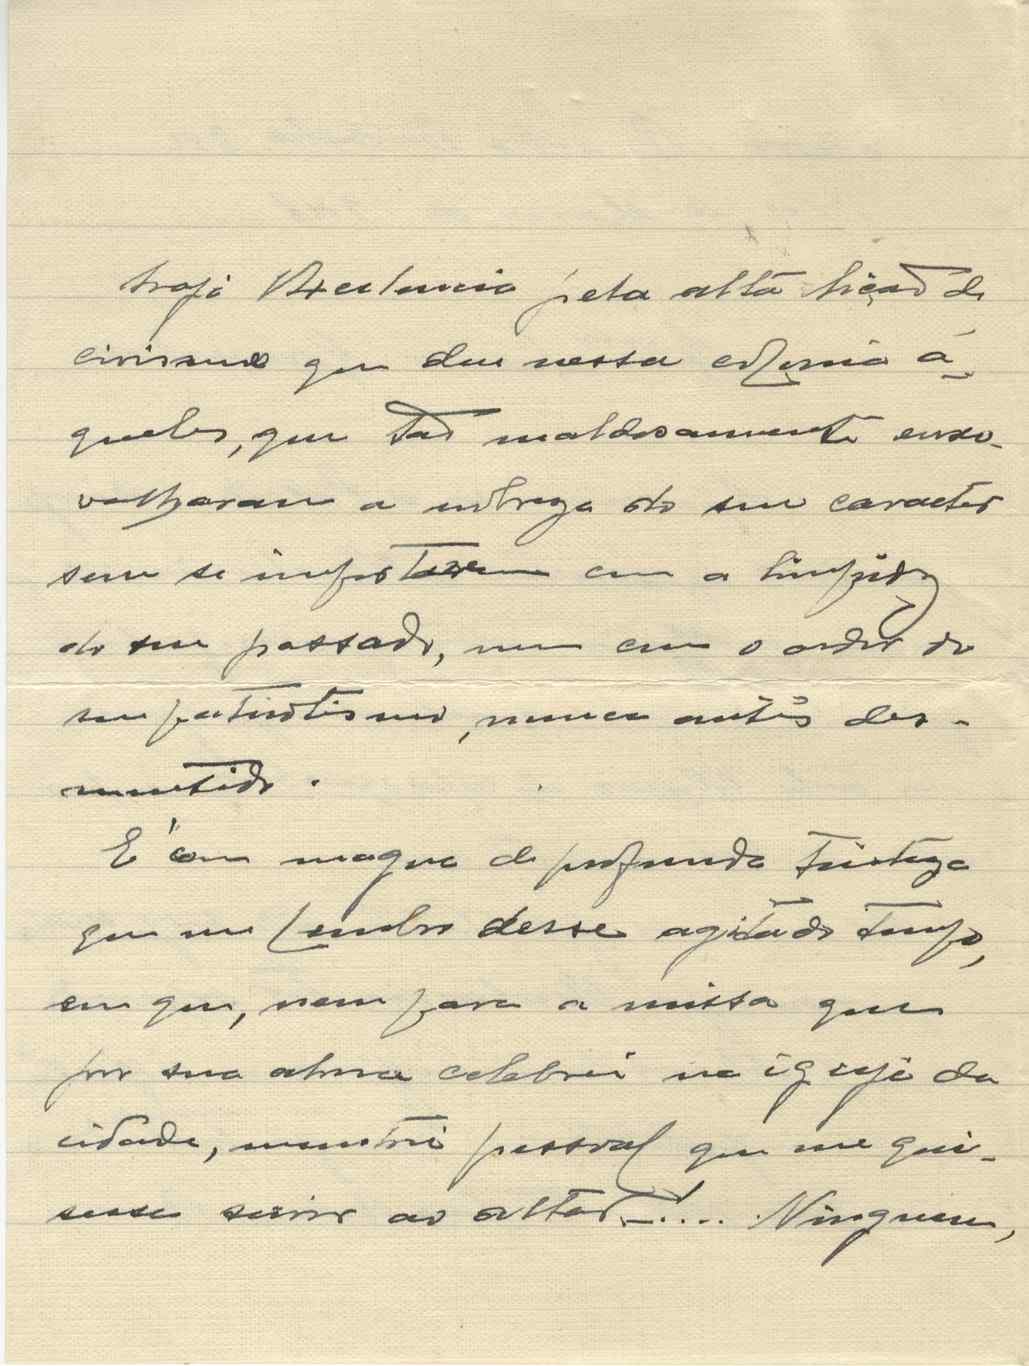 hoje Excelencia pela alta lição de
civismo que deu nessa colonia á-
queles, que tão maldosamente enxo-
valharam a nobreza do seu caracter
sem se importarem com a limpidez
do seu passado, nem com o ardor do
seu patriotismo, nunca antes des-
mentido.
E' com magua e profunda tristeza
que me lembro desse agitado tempo,
em que, nem para a missa que
por sua alma celebrei na igreja da
cidade, encontrei pessoal que me qui-
sesse servir ao altar!.... Ninguem,